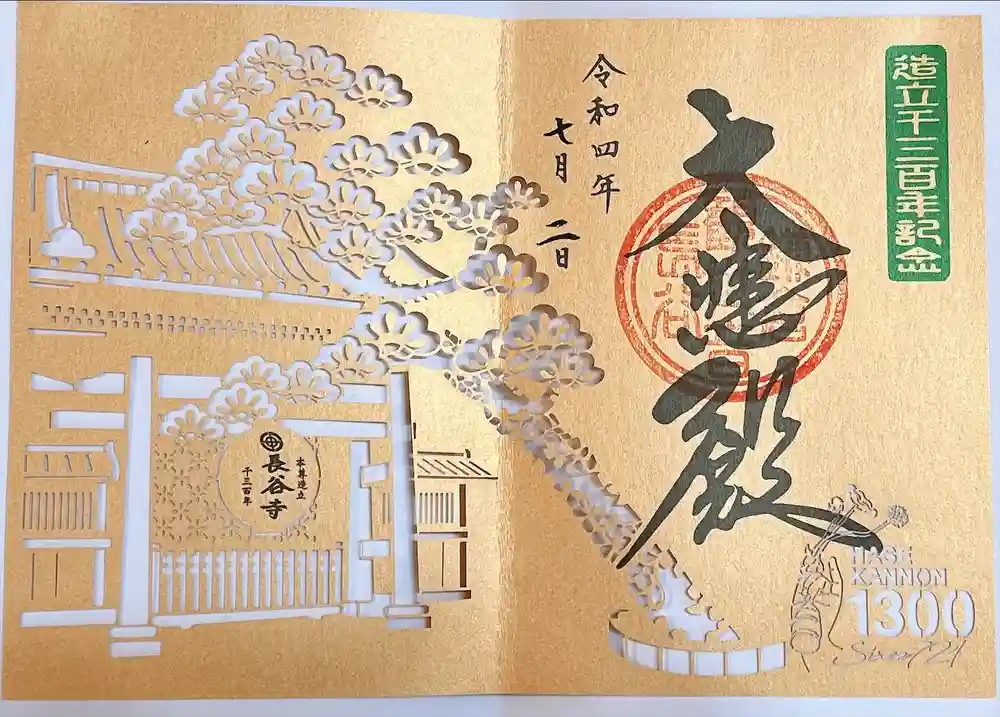 造立千三百年記念
大悲殿
令和四年
七月二日
本尊造立
長谷寺
千三百年
HASE
KANNON
1300